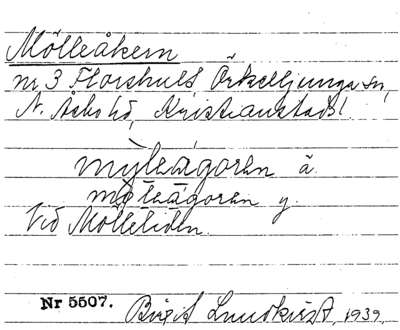 Mölleåkern
nr 3 Florshult, Örkelljunga sn,
N. Åsbo hd, Kristianstads l.
mỳleàgoren ä.
møleàgoren y.
Vid Mölleliden.
Nr 5507. Birgit Lundkvist, 1939.